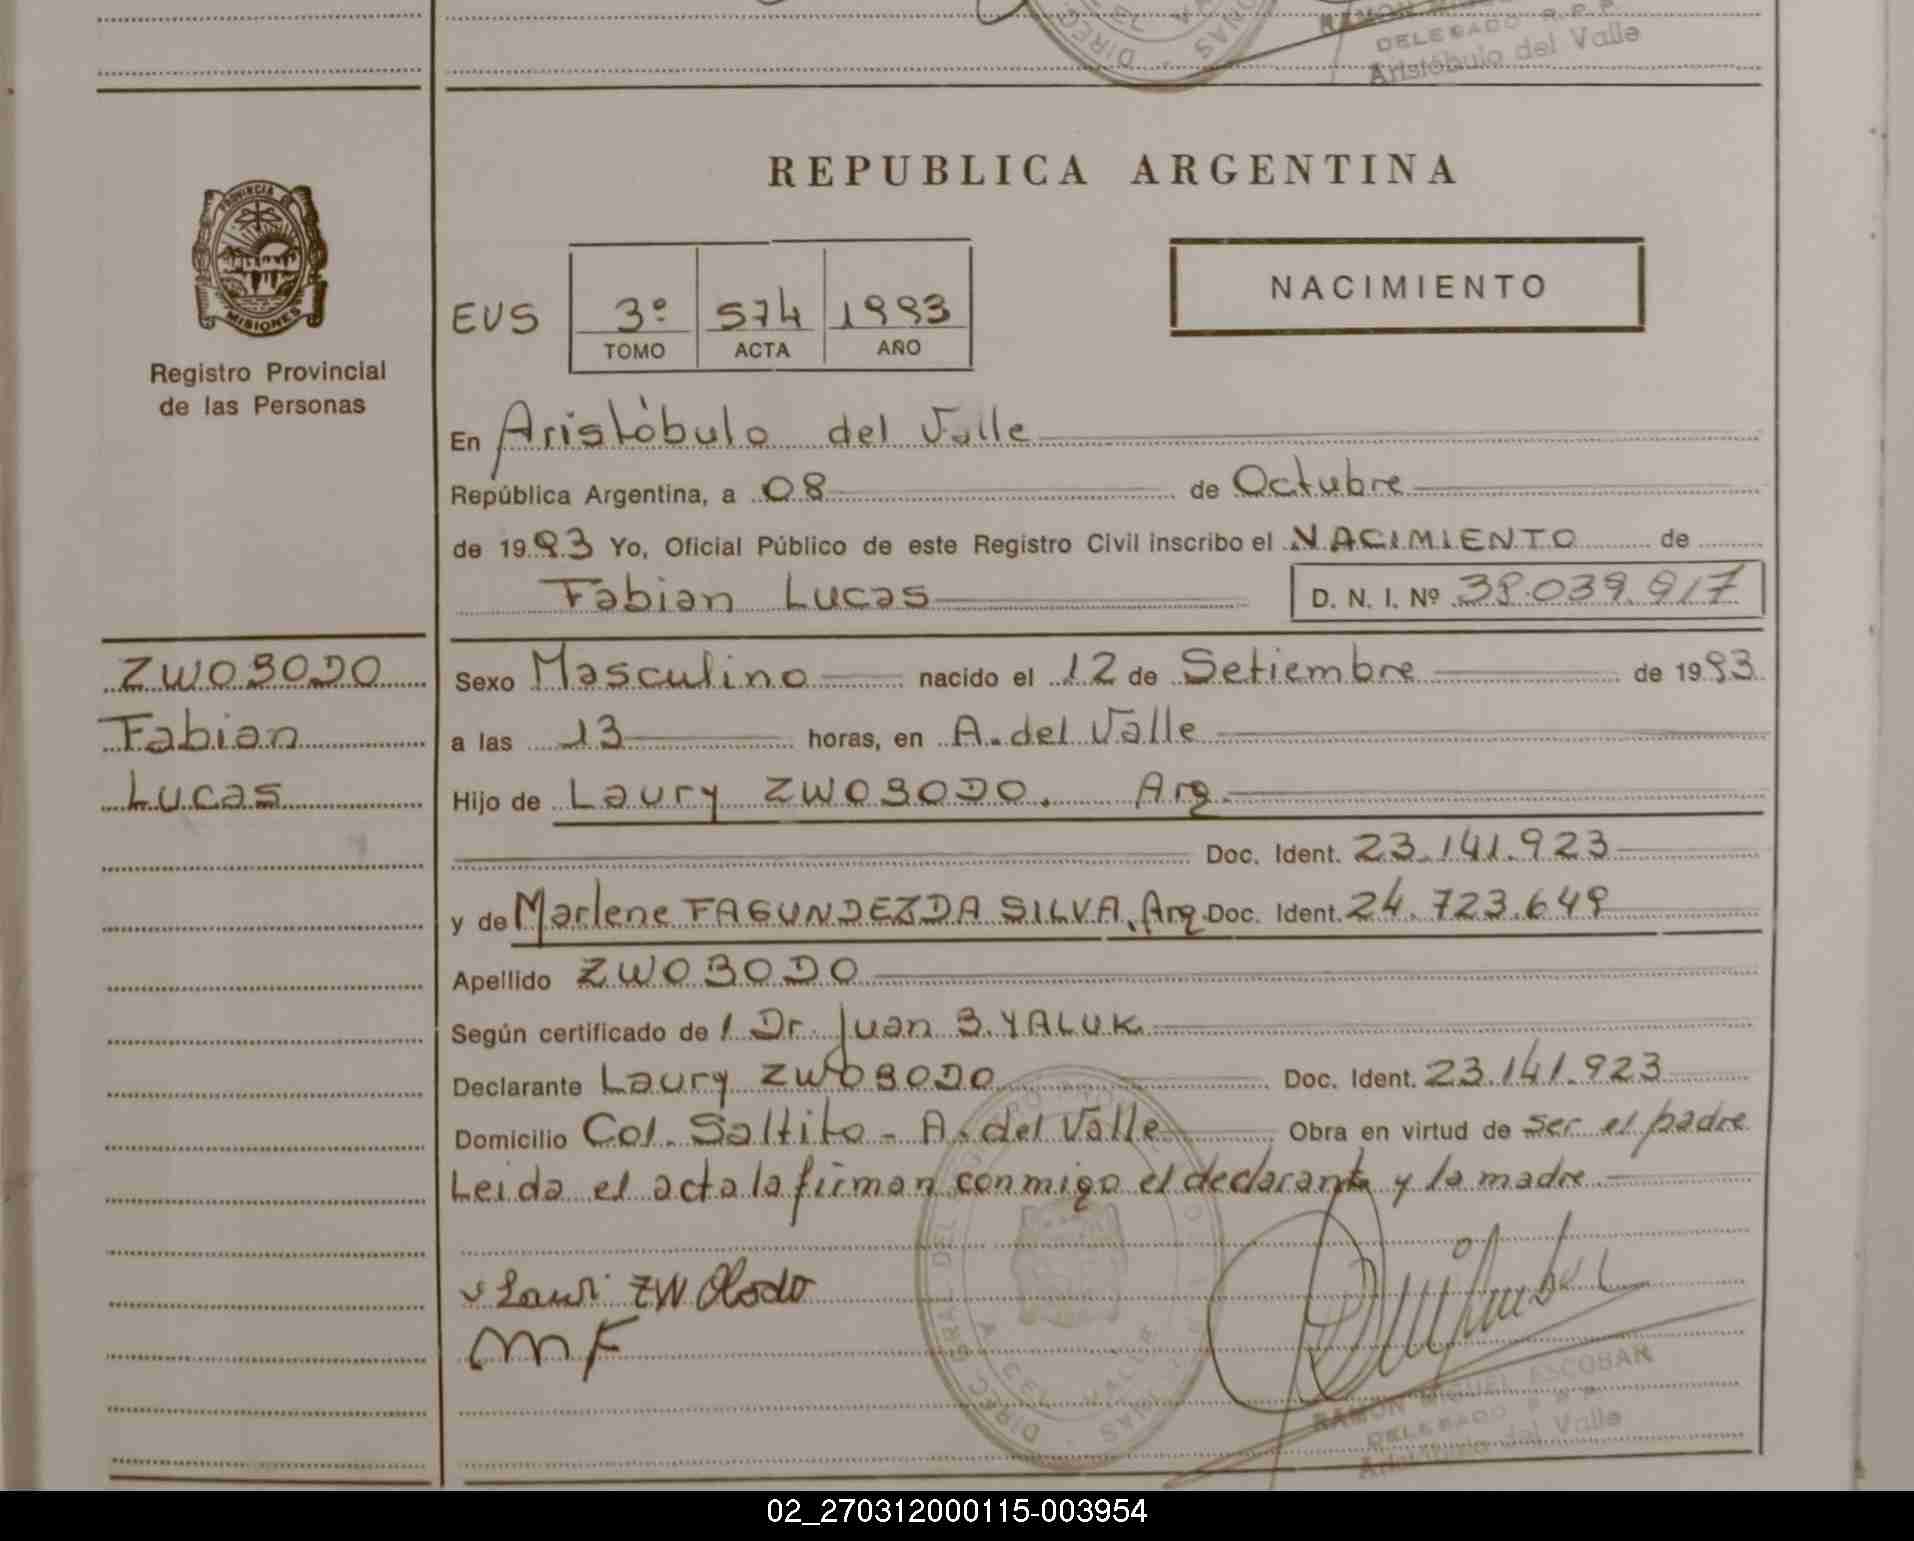 RAMON
DELEGADO R.P.P.
Aristóbulo del Valle
REPUBLICA ARGENTINA
PROVINCIA DE
MISIONES
Registro Provincial
de las Personas
NACIMIENTO
EUS 3º 574 1993
TOMO ACTA AÑO
En Aristóbulo del Valle
República Argentina, a 08 de Octubre
de 1993 Yo, Oficial Público de este Registro Civil inscribo el NACIMIENTO de
Fabian Lucas D. N. I. Nº 38.039.917
ZWOBODO
Fabian
Lucas
Sexo Masculino nacido el 12 de Setiembre de 1993
a las 13 horas, en A. del Valle
Hijo de Laury ZWOBODO. Arg.
Doc. Ident. 23.141.923
y de Marlene FAGUNDEZ DA SILVA, Arg. Doc. Ident. 24.723.649
Apellido ZWOBODO
Según certificado de l Dr. Juan B. YALUK
Declarante Laury ZWOBODO Doc. Ident. 23.141.923
Domicilio Col. Saltito - A. del Valle Obra en virtud de ser el padre
Leida el acta la firman conmigo el declarante y la madre
Lauri ZWObodo
MF
RAMON MIGUEL ESCOBAR
DELEGADO R.P.P.
Aristóbulo del Valle
02_270312000115-003954